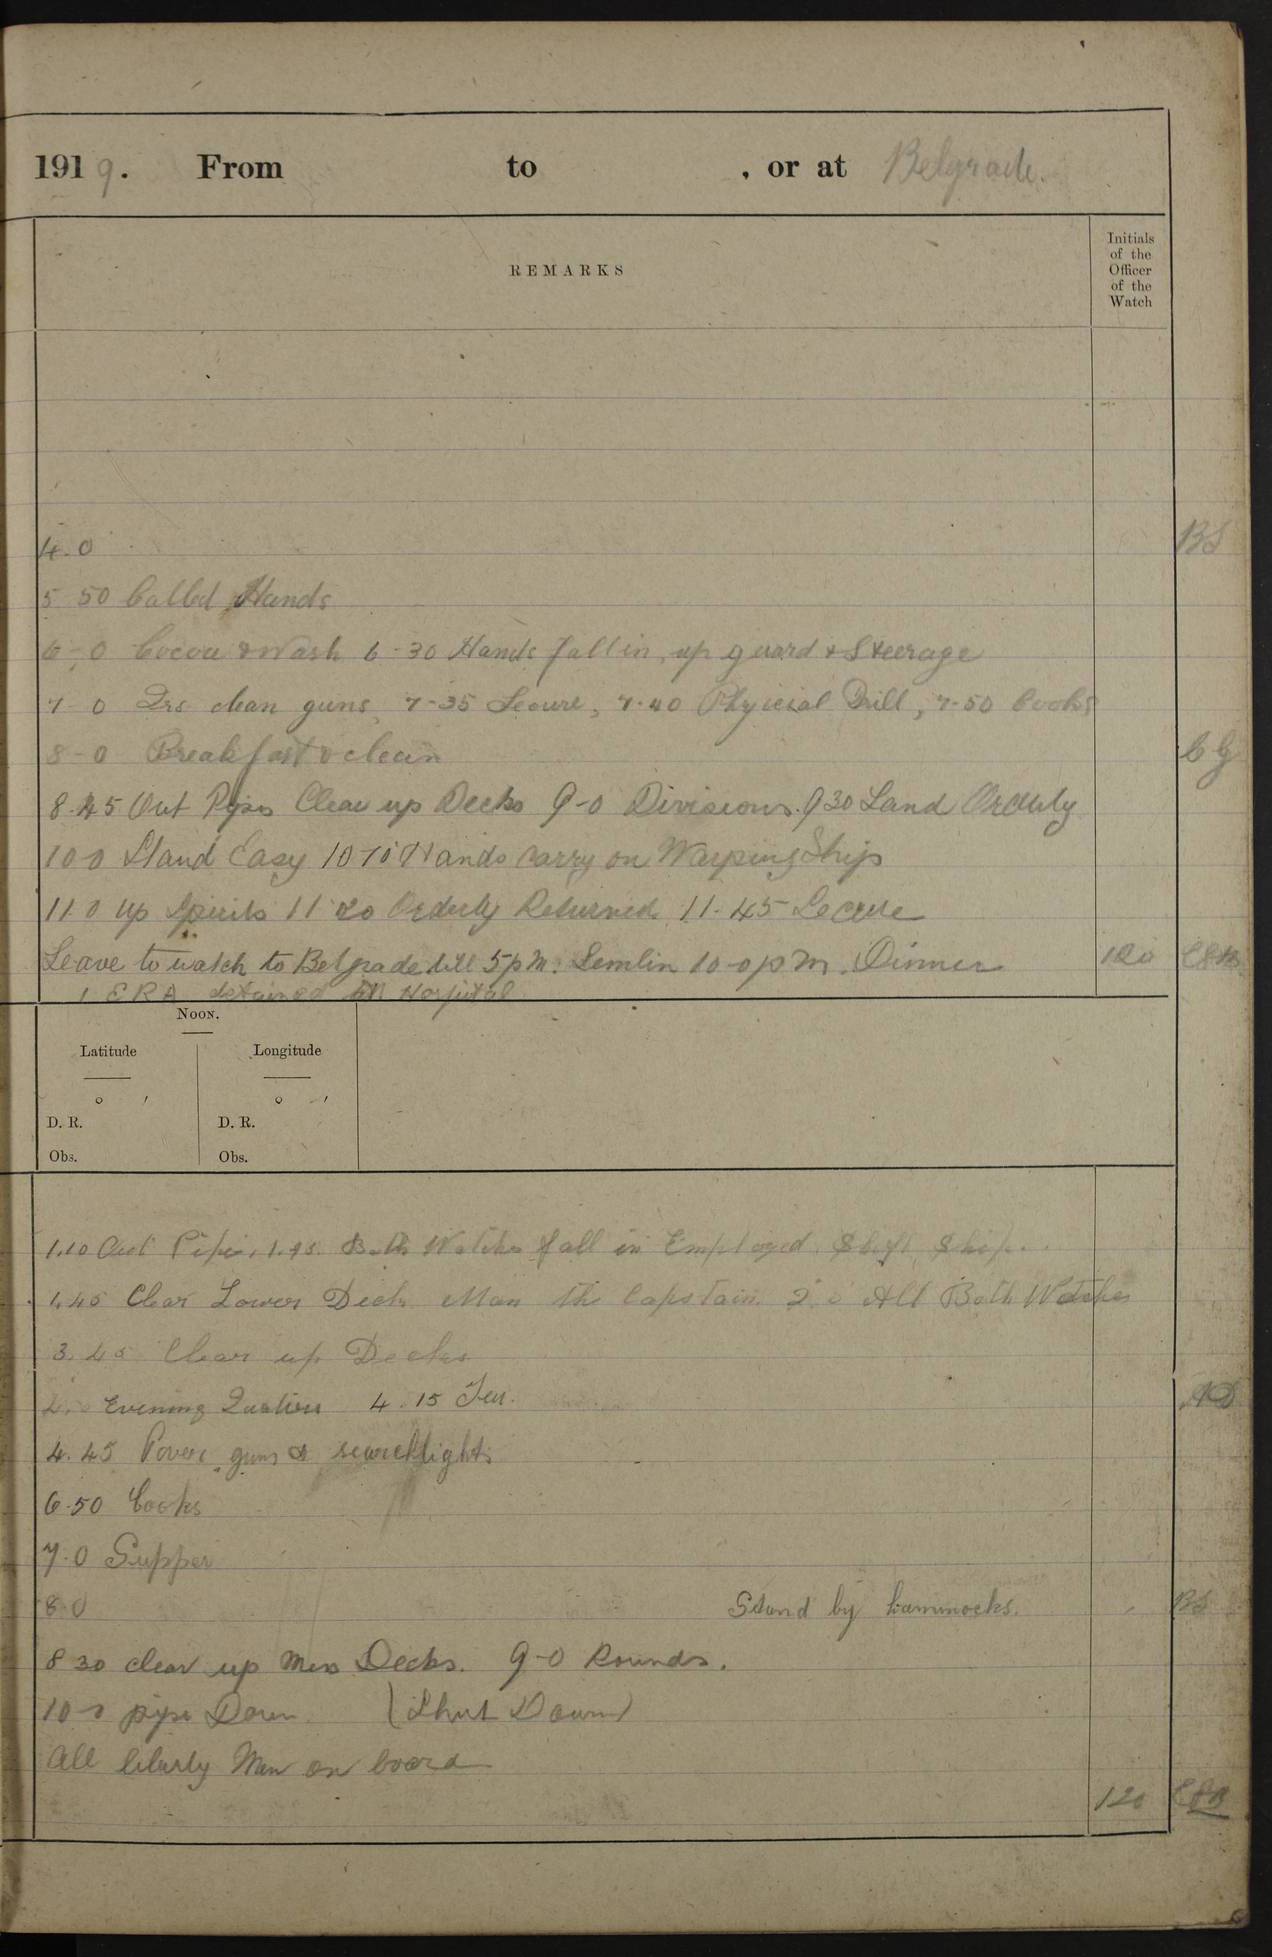 1919. From to , or at Belgrade.
REMARKS
Initials of the Officer of the Watch
4.0 BS
5 50 Called Hands
6-0 Cocoa & Wash 6-30 Hands fall in, up guard & Steerage
7 0 Qrs clean guns, 7-35 Secure, 7.40 Physical Drill, 7-50 Cooks
8-0 Breakfast & clean CG
8.45 Out Pipes Clear up Decks 9-0 Divisions. 9 30 Land Orderly
10 0 Stand Easy 10 10 Hands carry on Warping Ship
11.0 up Spirits 11 20 Orderly Returned 11.45 Secure
Leave to watch to Belgrade till 5 pm. Semlin 10-0 pm. Dinner 120
1 ERA detained in Hospital
NOON.
Latitude Longitude
° ′ ° ′
D. R. D. R.
Obs. Obs.
1.10 Out Pipes, 1.15 Both Watches fall in Employed Shift Ship.
1.45 Clear Lower Deck Man the Capstain. 2.0 All Both Watches
3.45 Clear up Decks
4.0 Evening Quarters 4.15 Tea.
4.45 Cover guns & searchlights
6.50 Cooks
7.0 Supper
8.0 Stand by hammocks. BS
8 30 clear up Mess Decks. 9-0 Rounds.
10-0 pipe Down (Shut Down)
All liberty Men on board
120 CSB